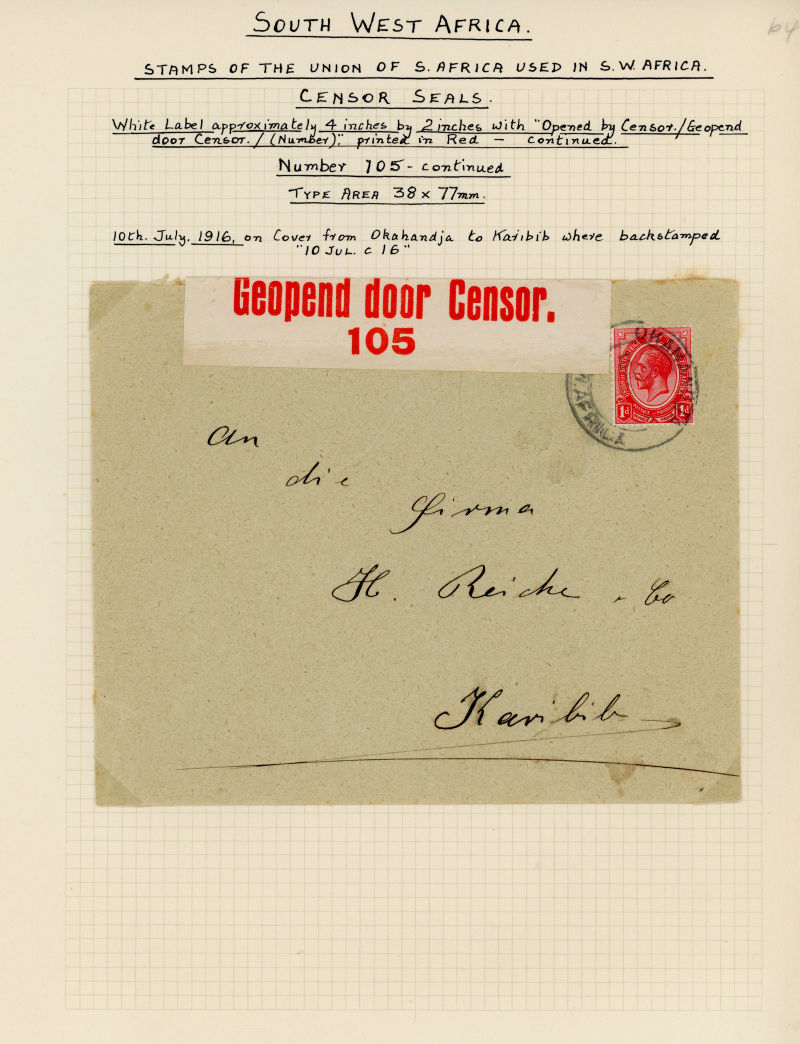 64
SOUTH WEST AFRICA.
STAMPS OF THE UNION OF S. AFRICA USED IN S.W. AFRICA.
CENSOR SEALS.
White Label approximately 4 inches by 2 inches with "Opened by Censor./Geopend
door Censor./(Number)," printed in Red – continued.
Number 105 - continued
TYPE AREA 38 x 77mm.
10th. July. 1916, on Cover from Okahandja to Karibib where backstamped
"10 JUL. c 16"
Geopend door Censor.
105
OKAHANDJA
W. AFRICA
1d 1d
An
die
Firma
H. Reiche & Co
Karibib